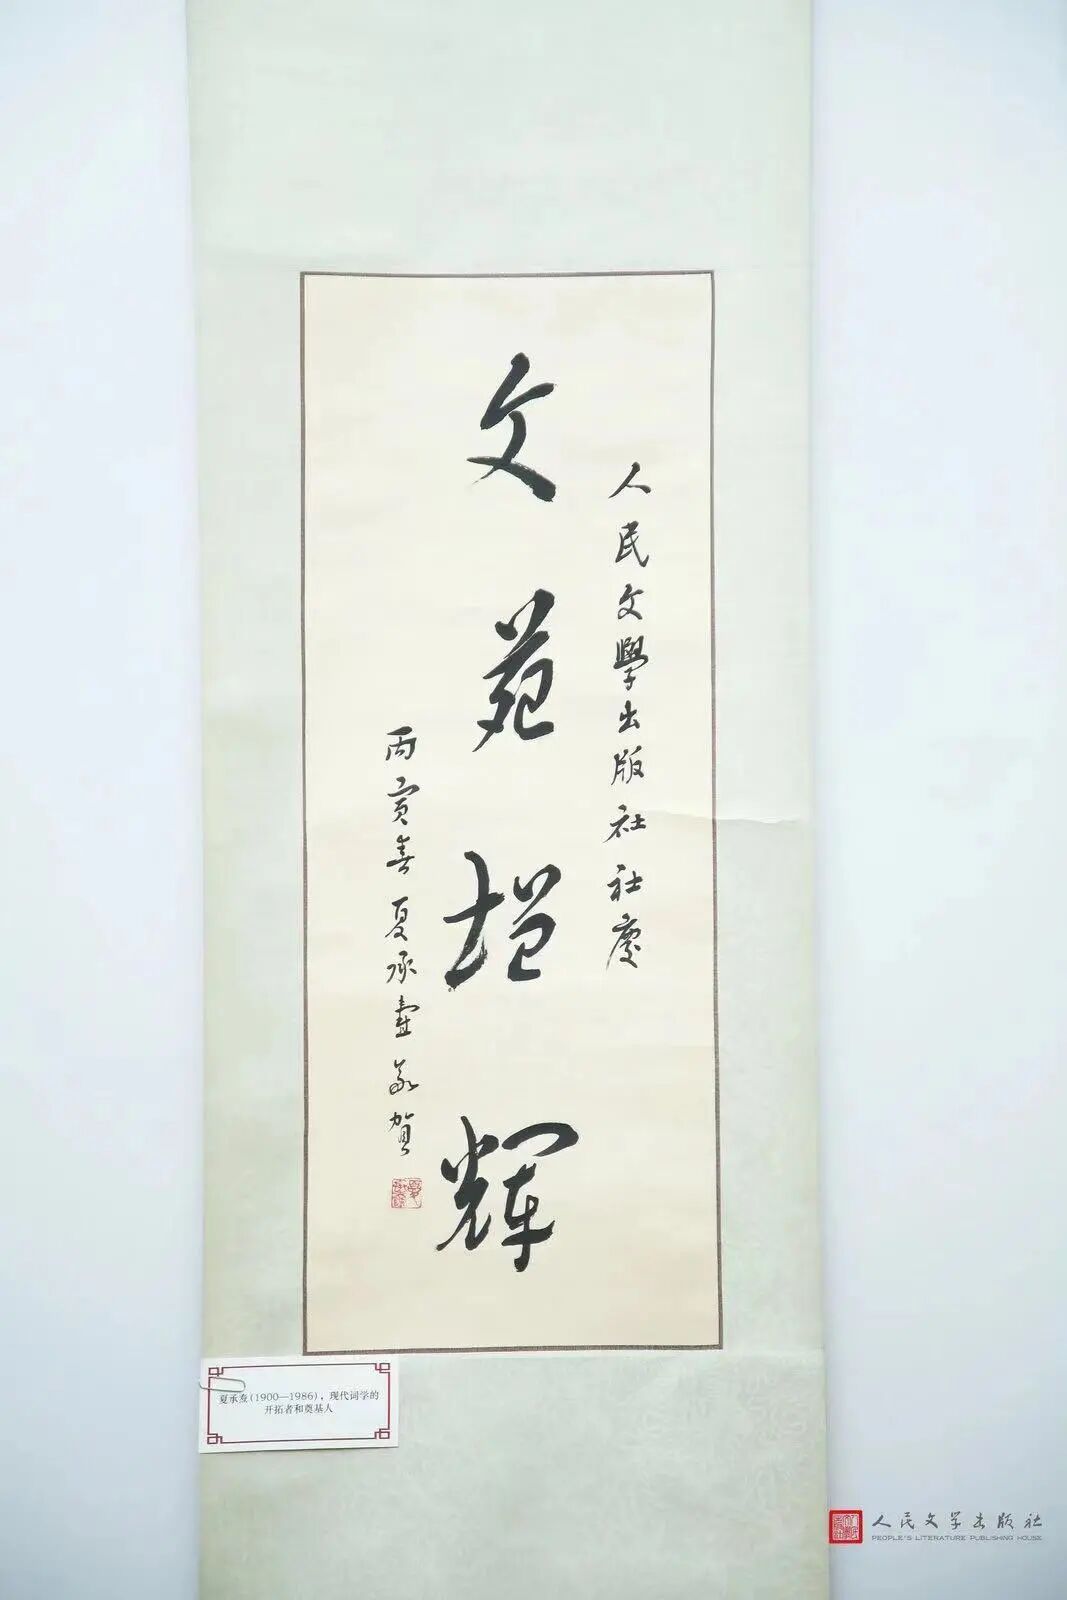 人民文學出版社社慶
文苑增輝
丙寅春夏承燾敬賀
夏承焘(1900—1986),现代词学的
开拓者和奠基人
人民文学出版社
PEOPLE'S LITERATURE PUBLISHING HOUSE